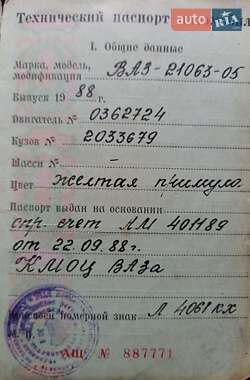 AUTO RIA
Технический паспорт
I. Общие данные
Марка, модель,
модификация ВАЗ-21063-05
Выпуск 19 88 г.
Двигатель № 0362724
Кузов № 2033679
Шасси № –
Цвет желтая примула
Паспорт выдан на основании
спр. счет АМ 401189
от 22.09.88г.
КМОЦ ВАЗа
Присвоен номерной знак Л 4061 КХ
М. П.
АЩ № 887771